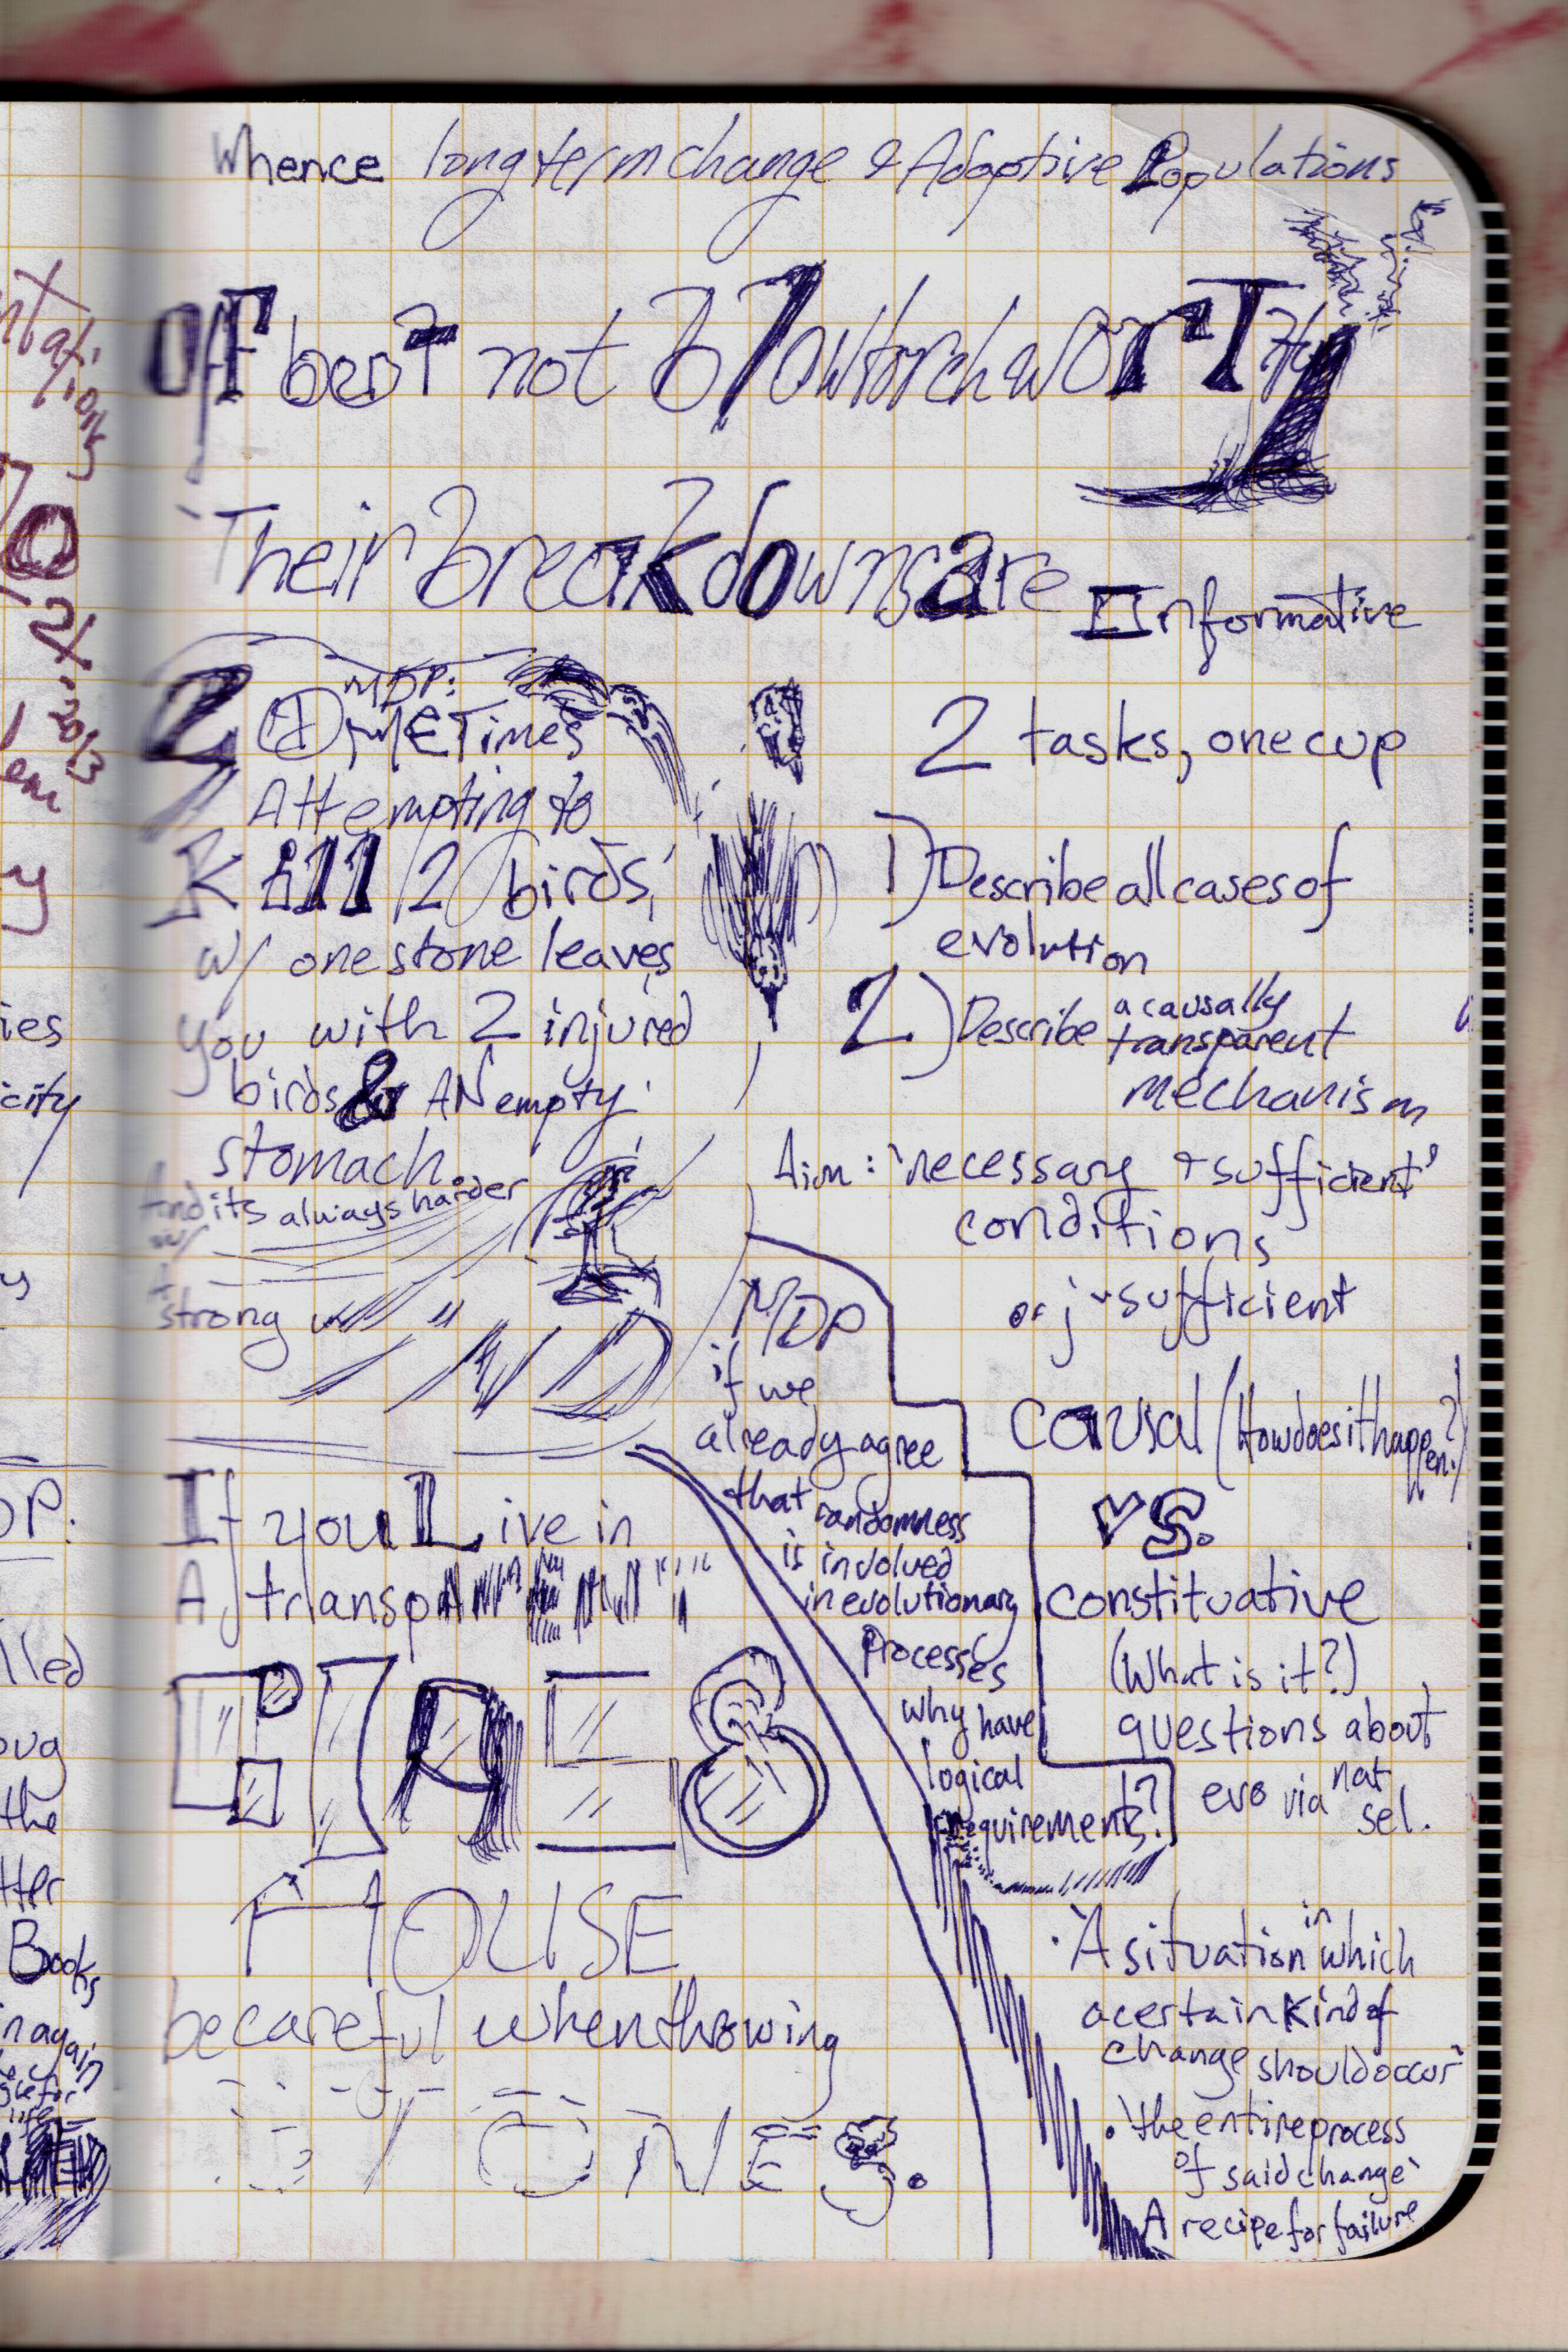 Whence longterm change & Adaptive Populations
Off beat not blowtorch worthy
Their breakdowns are Informative
2
MDP:
sometimes
Attempting to
Kill 2 birds
w/ one stone leaves
you with 2 injured
birds & AN empty
stomach.
And its always harder
w/
strong w
2 tasks, one cup
1) Describe all cases of
evolution
2) Describe a causally
transparent
mechanism
Aim: 'necessary + sufficient'
conditions
or j-sufficient
causal (How does it happen?)
vs.
constituative
(What is it?)
questions about
evo via nat
sel.
· 'A situation in which
a certain kind of
change should occur'
· 'the entire process
of said change'
A recipe for failure
MDP
if we
already agree
that randomness
is involved
in evolutionary
processes
why have
logical
requirements!?
If you Live in
A transparent
GlAS8
HOUSE
be careful when throwing
STONES.
ntations
70
2x
2013
em
y
ies
city
y
DP.
lled
oug
the
tter
Books
in again
life